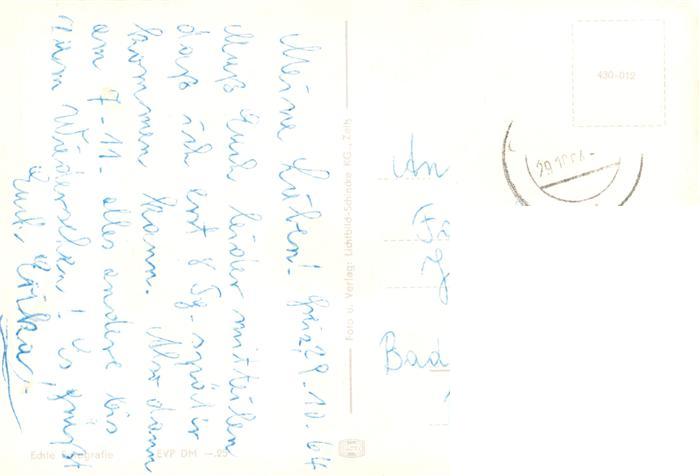 Meine Lieben! Greiz 29.10.64
Muß Euch leider mitteilen
daß ich erst 8 Tg. später
kommen kann. Also dann
am 7-11. alles andere bis
zum Wiedersehen! Es grüßt
Euch Erika!
Echte Fotografie
EVP DM —.25
Foto u. Verlag: Lichtbild-Schincke KG., Zeitz
430-012
An
Fa
Bad